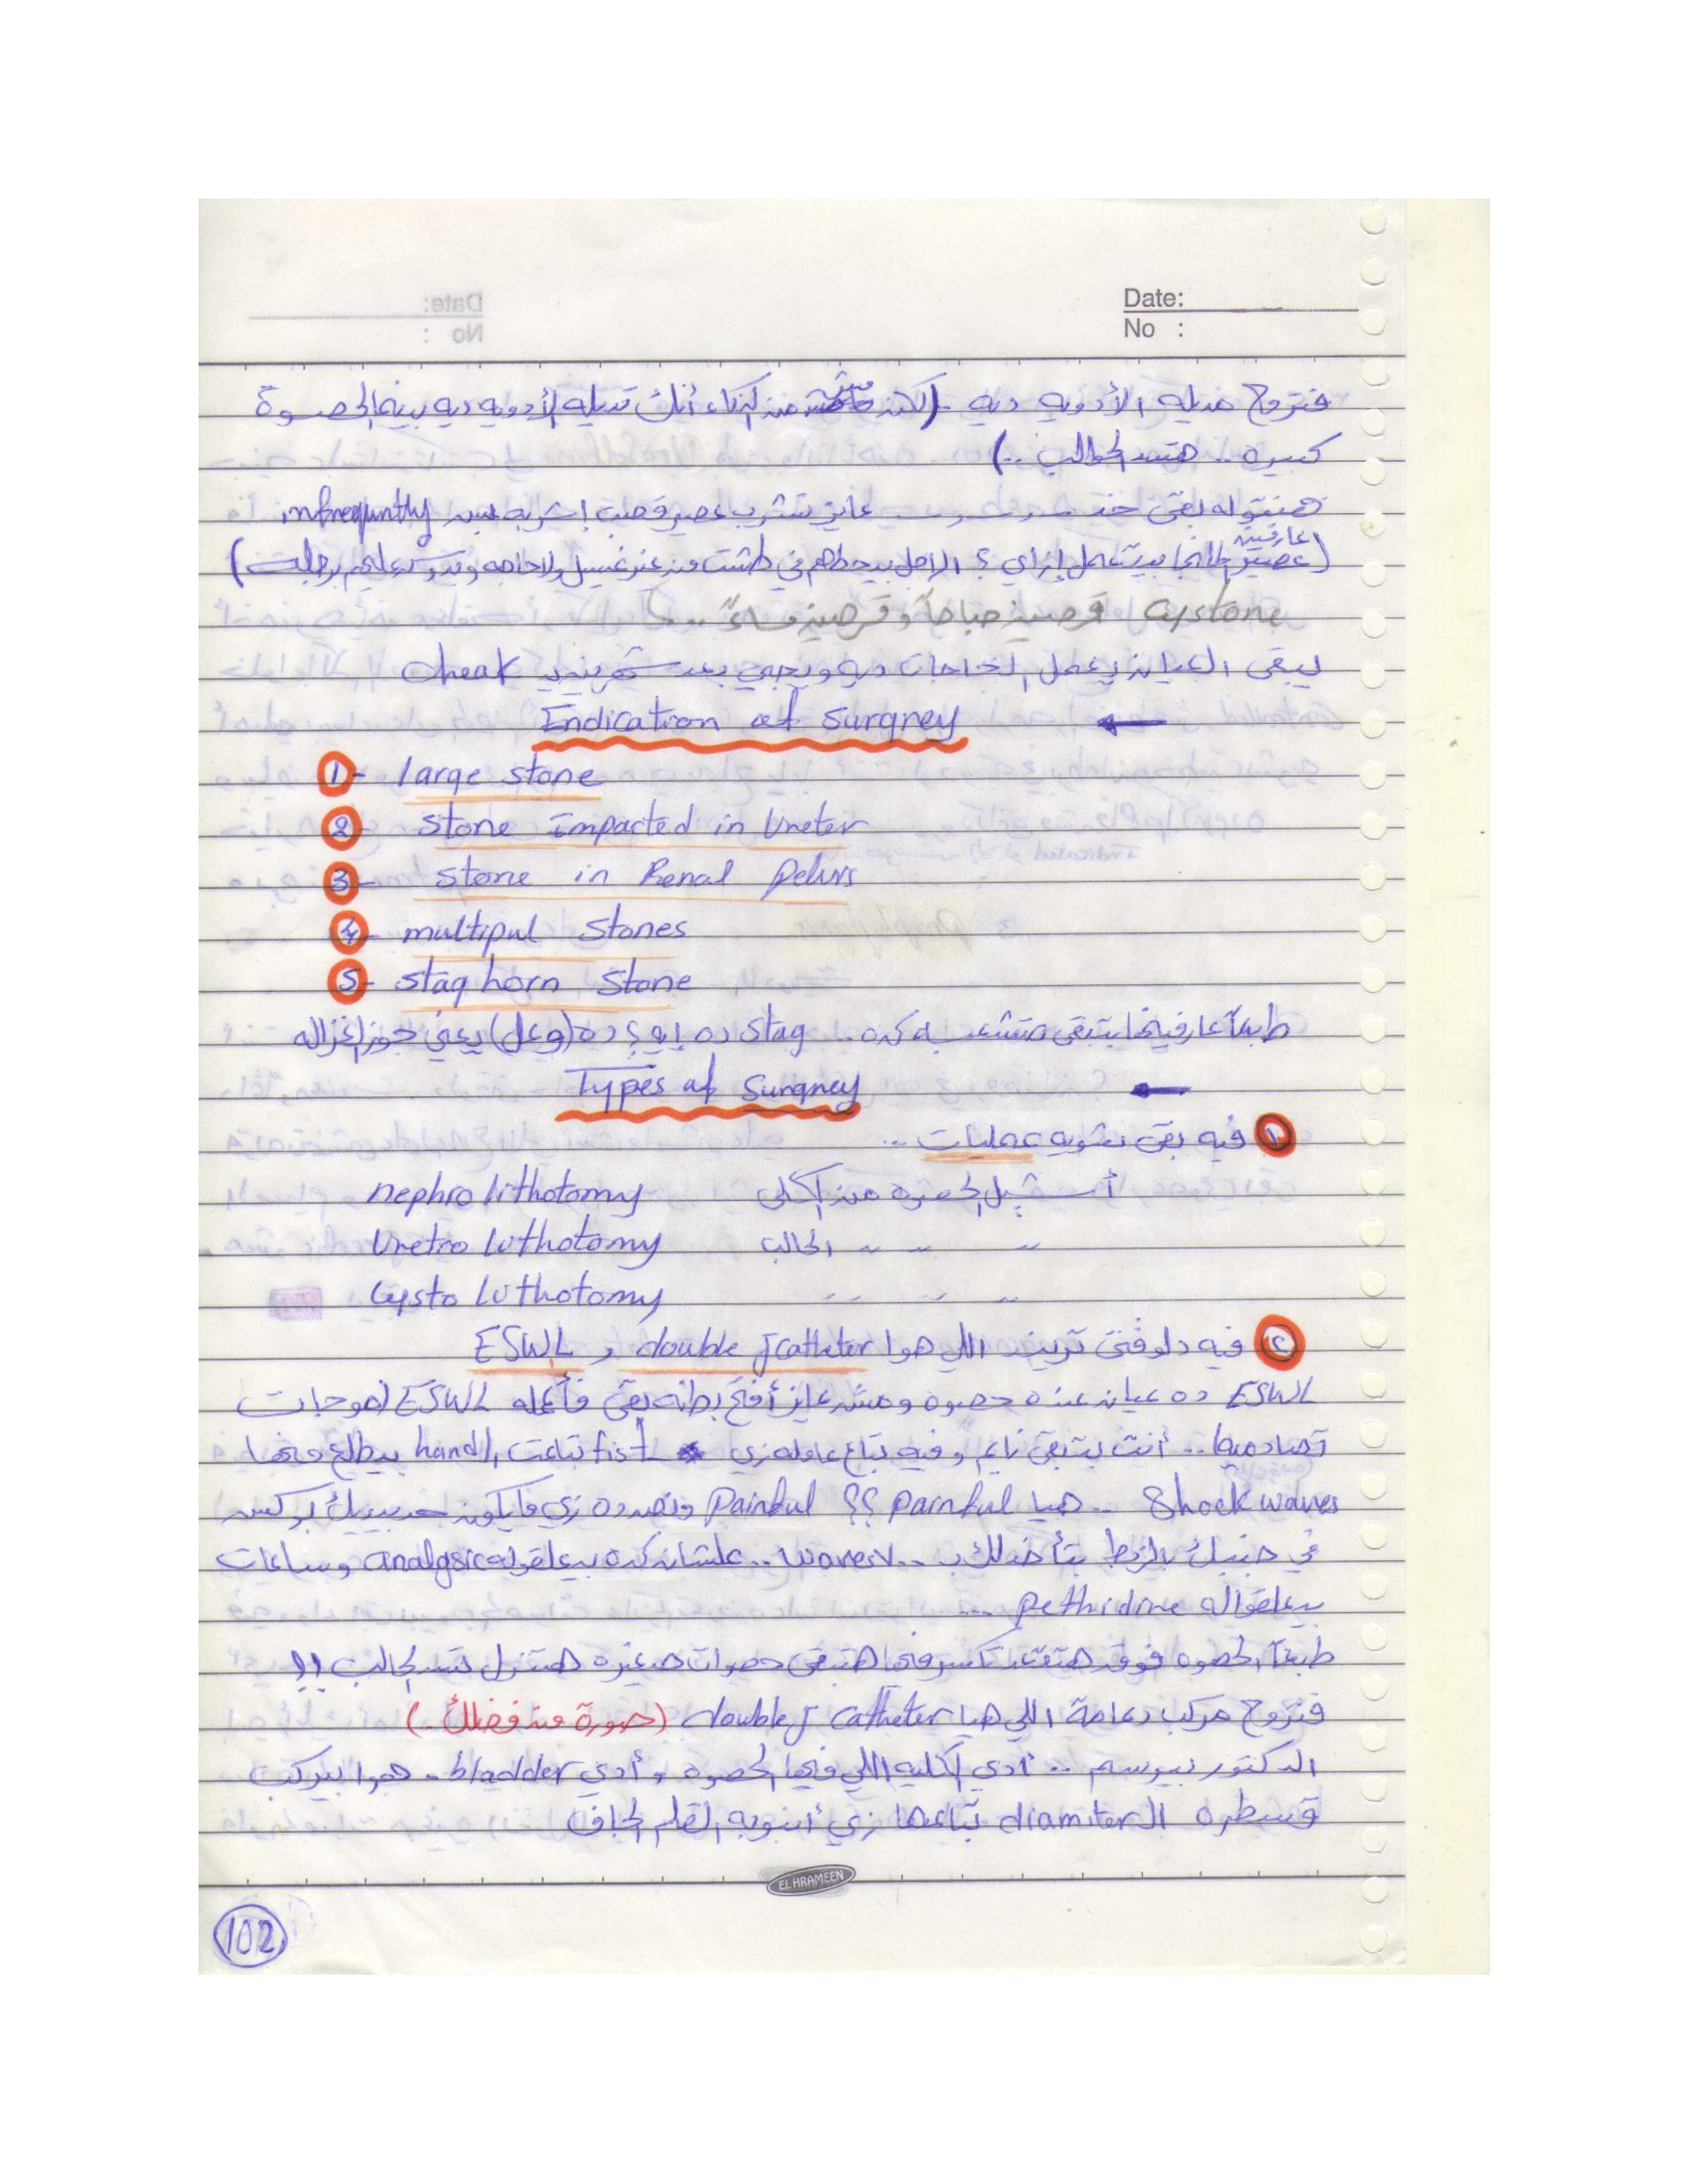 Date:
No :
فتروح مديله الأدويه ديه .. (لكن مش من الذكاء أنك تديله الأدويه ديه بينما الحصوة
كبيره .. هتسد الحالب ..)
هنقوله بقى خد عايز تشرب عصير قصب إشربه بس infrequntly
(عارفين عصير المانجا بيتعمل إزاي ؟ الراجل بيحطهم في طشت من غير غسيل ولا حاجه ويدوس عليهم برجليه)
Cystone قرصين صباحاً وقرصين مساءً ...
يبقى العيان يعمل الحاجات ديه ويجي بعد شهرين cheak
Endication of Surgney ←
1- large stone
2- Stone impacted in Ureter
3- Stone in Renal Pelvis
4- multipul Stones
5- Stag horn Stone
طبعاً عارفينها بتبقى متشعبه كده .. Stag ده إيه ؟ ده (وعل) يعني جوز الغزاله
Types of Surgney ←
١ فيه بقى شوية عمليات ..
nephro lithotomy أشيل الحصوه من الكلى
Uretro Lithotomy " " " الحالب
Cysto Lithotomy " " "
٢ فيه دلوقتى ترند اللي هوا double J catheter و ESWL
ESWL ده عيان عنده حصوه ومش عايز أفتح بطنه بقى فأعمله ESWL (موجات
تصادميه) .. أنت بتبقى نايم وفيه بتاع عامله زي fist بتاعت ال hand بيطلع منها
Shock waves .. هيا painful ؟؟ painful ونص ده زي ما يكون حد بيديك بوكس
في جنبك بالظبط بتأخدلك ب .. waves .. علشان كده بيعلقوله analgsic وساعات
بيعلقوله pethidine ...
طبعاً الحصوه فوق هتقعد تكسر فيها هتبقى حصوات صغيره هتنزل تسد الحالب !!
فتروح مركب دعامة اللي هيا double J catheter (صورة من فضلك .)
الدكتور بيرسم .. أدي الكليه اللي فيها الحصوه وأدي bladder . هوا بيركب
قسطره ال diamiter بتاعها زي أنبوبه القلم الجاف
EL HRAMEEN
102